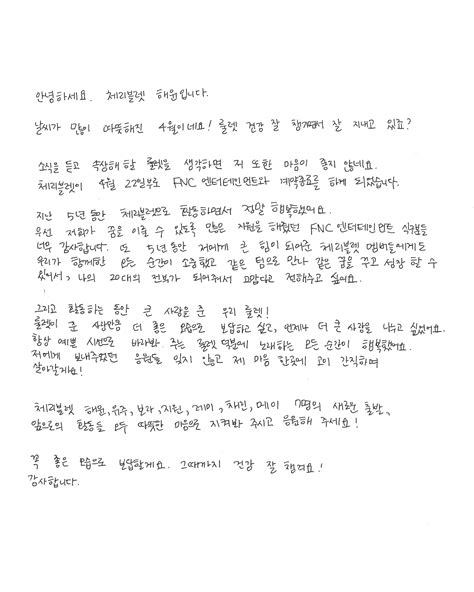 안녕하세요. 체리블렛 해윤입니다.
날씨가 많이 따뜻해진 4월이네요! 룰렛 건강 잘 챙기면서 잘 지내고 있죠?
소식을 듣고 속상해할 룰렛을 생각하면 저 또한 마음이 좋지 않네요.
체리블렛이 4월 22일부로 FNC 엔터테인먼트와 계약종료를 하게 되었습니다.
지난 5년 동안 체리블렛으로 활동하면서 정말 행복했어요.
우선 저희가 꿈을 이룰 수 있도록 많은 지원을 해줬던 FNC 엔터테인먼트 식구들
너무 감사합니다. 또 5년 동안 저에게 큰 힘이 되어준 체리블렛 멤버들에게는
우리가 함께한 모든 순간이 소중했고 같은 팀으로 만나 같은 꿈을 꾸고 성장 할 수
있어서, 나의 20대의 전부가 되어줘서 고맙다고 전해주고 싶어요.
그리고 활동하는 동안 큰 사랑을 준 우리 룰렛!
룰렛이 준 사랑만큼 더 좋은 모습으로 보답하고 싶고, 언제나 더 큰 사랑을 나누고 싶었어요.
항상 예쁜 시선으로 바라봐 주는 룰렛 덕분에 노래하는 모든 순간이 행복했어요.
저에게 보내주었던 응원들 잊지 않고 제 마음 한켠에 고이 간직하며
살아갈게요!
체리블렛 해윤, 유주, 보라, 지원, 레미, 채린, 메이 7명의 새로운 출발,
앞으로의 활동들 모두 따뜻한 마음으로 지켜봐 주시고 응원해 주세요!
꼭 좋은 모습으로 보답할게요. 그때까지 건강 잘 챙겨요!
감사합니다.